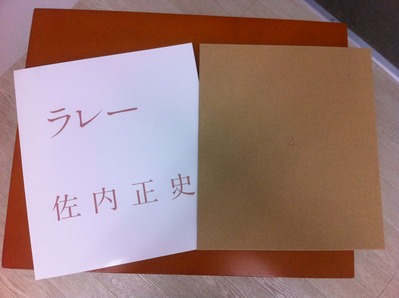 ラレー
佐内正史